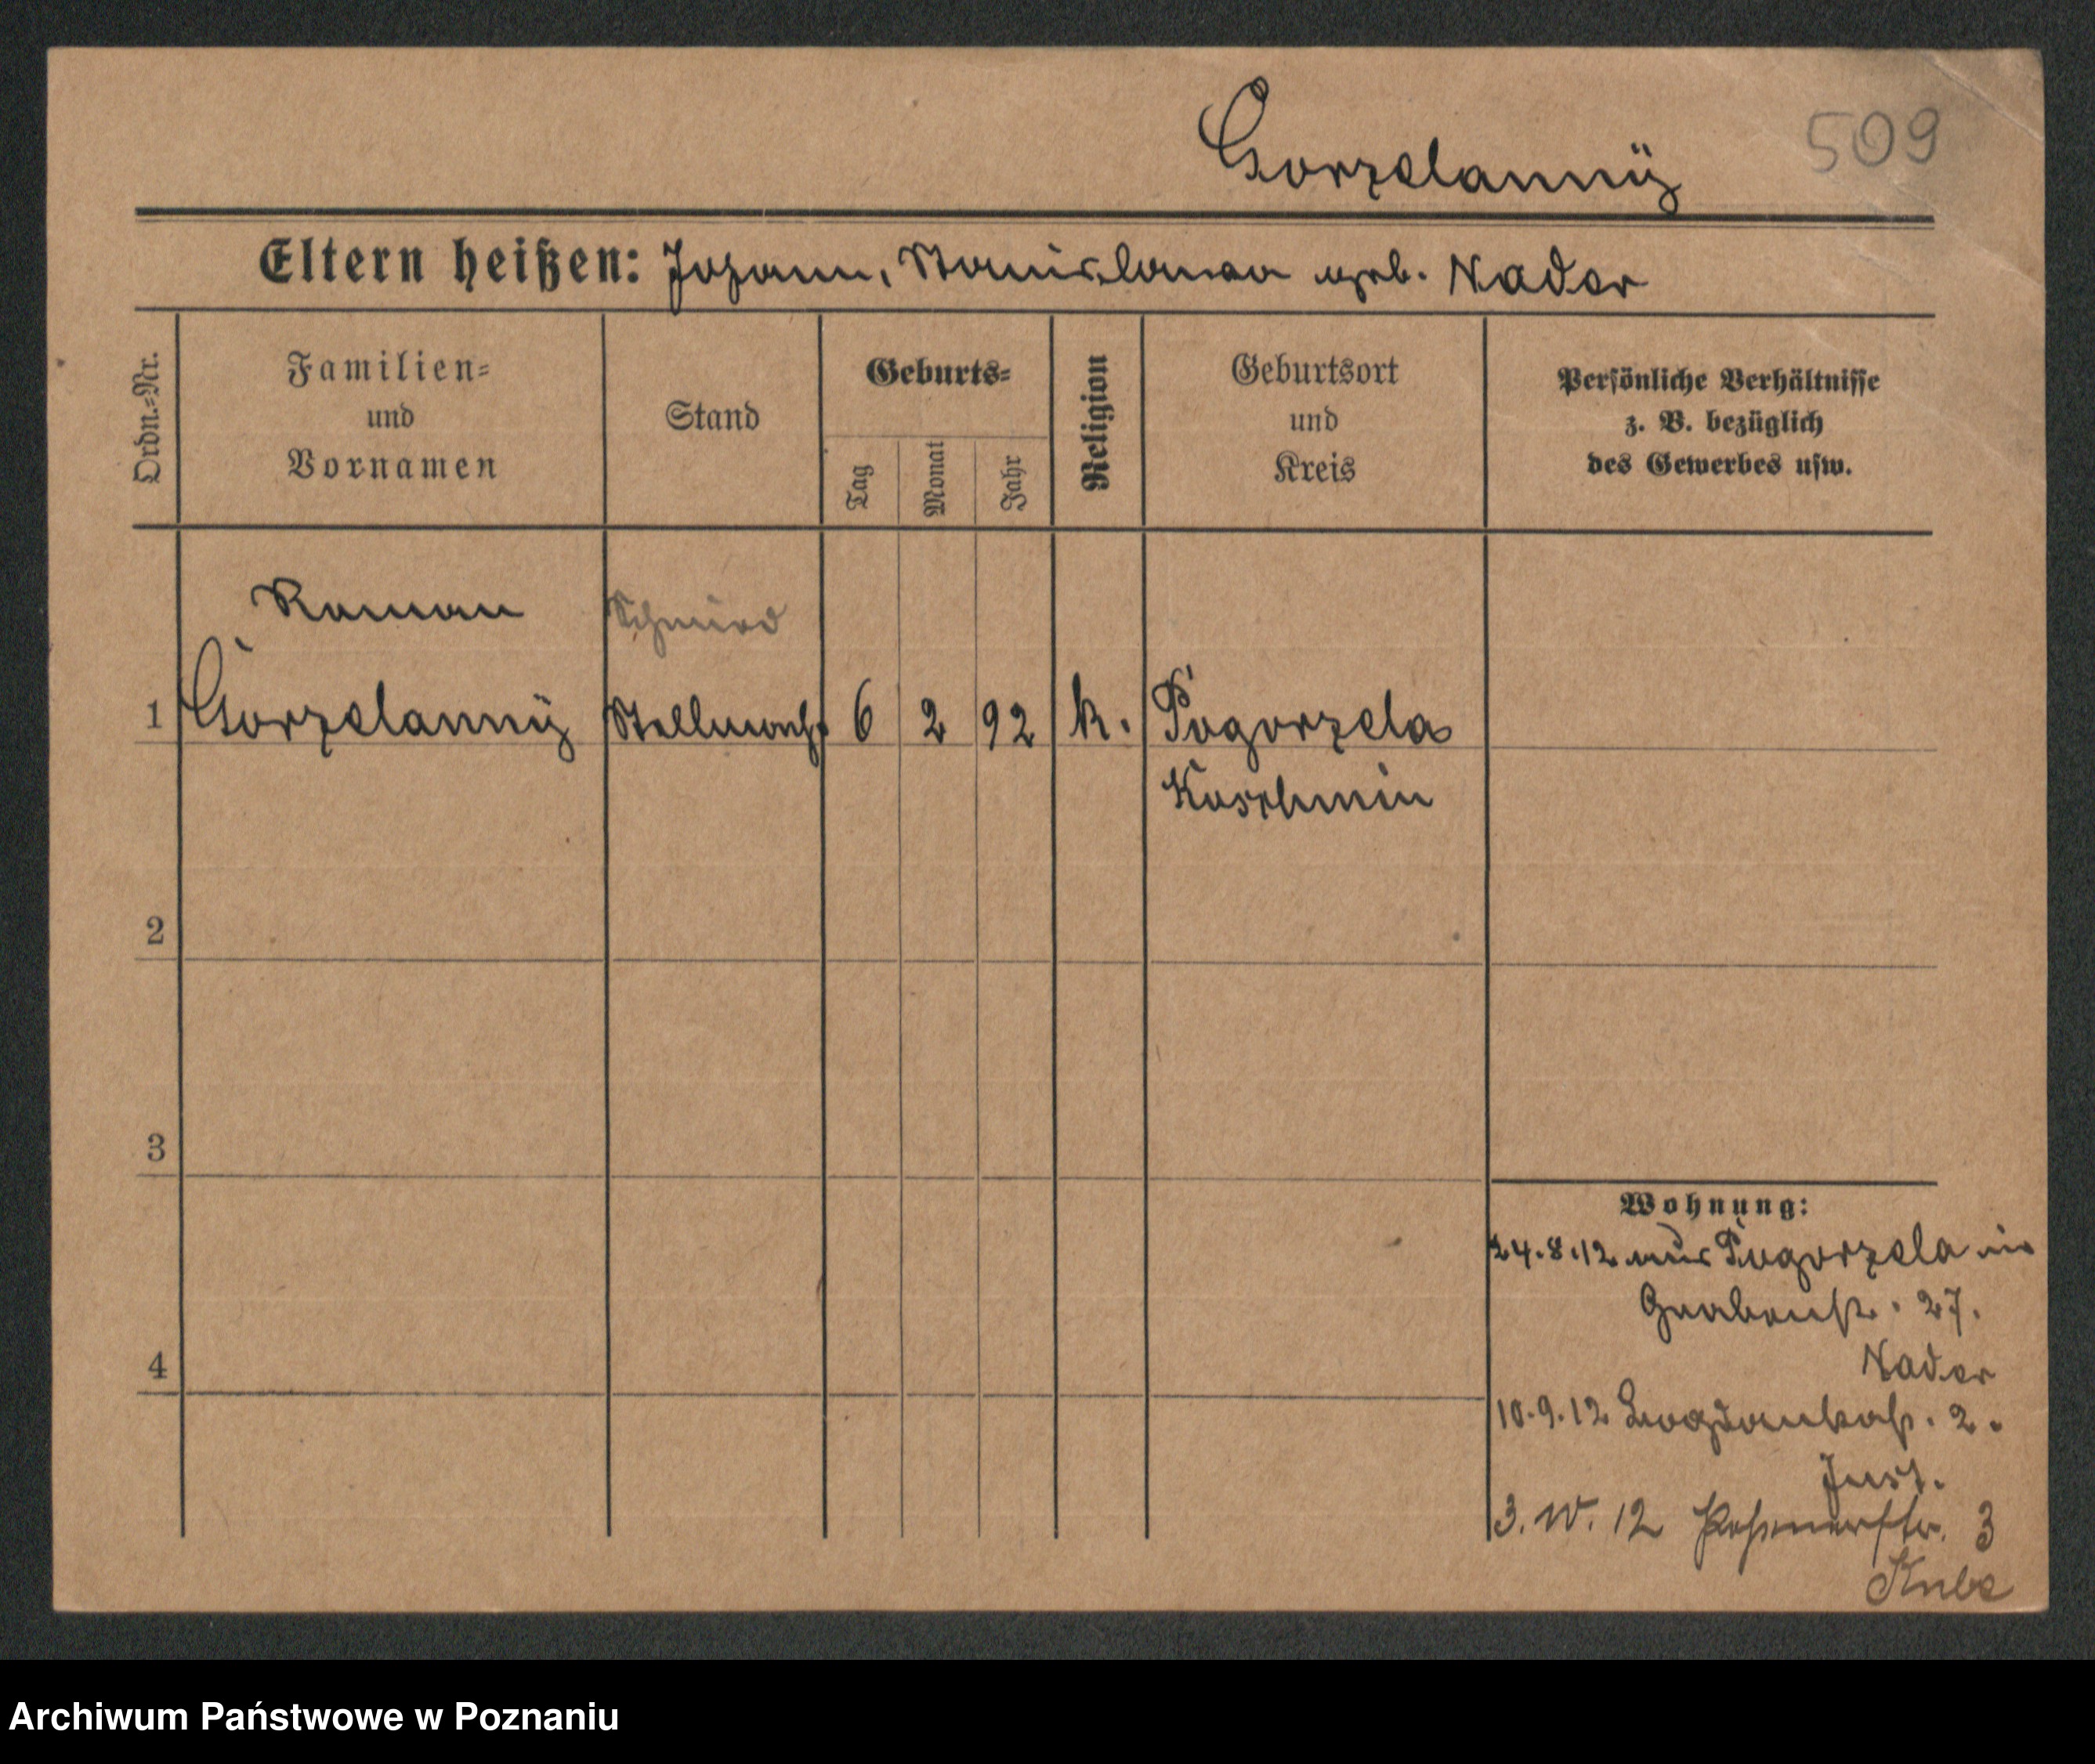 Gorzelanny 509
Eltern heißen: Johann, Stanislawa geb. Nader
Ordn.-Nr.
Familien=
und
Vornamen
Stand
Geburts=
Tag
Monat
Jahr
Religion
Geburtsort
und
Kreis
Persönliche Verhältnisse
z. B. bezüglich
des Gewerbes usw.
Roman Schmied
1 Gorzelanny Stellmach. 6 2 92 k. Pogorzela
Koschmin
2
3
4
Wohnung:
24.8.12 aus Pogorzela in
Grabenstr. 27.
Nader
10.9.12 2.
Just.
3. 12 3
Archiwum Państwowe w Poznaniu